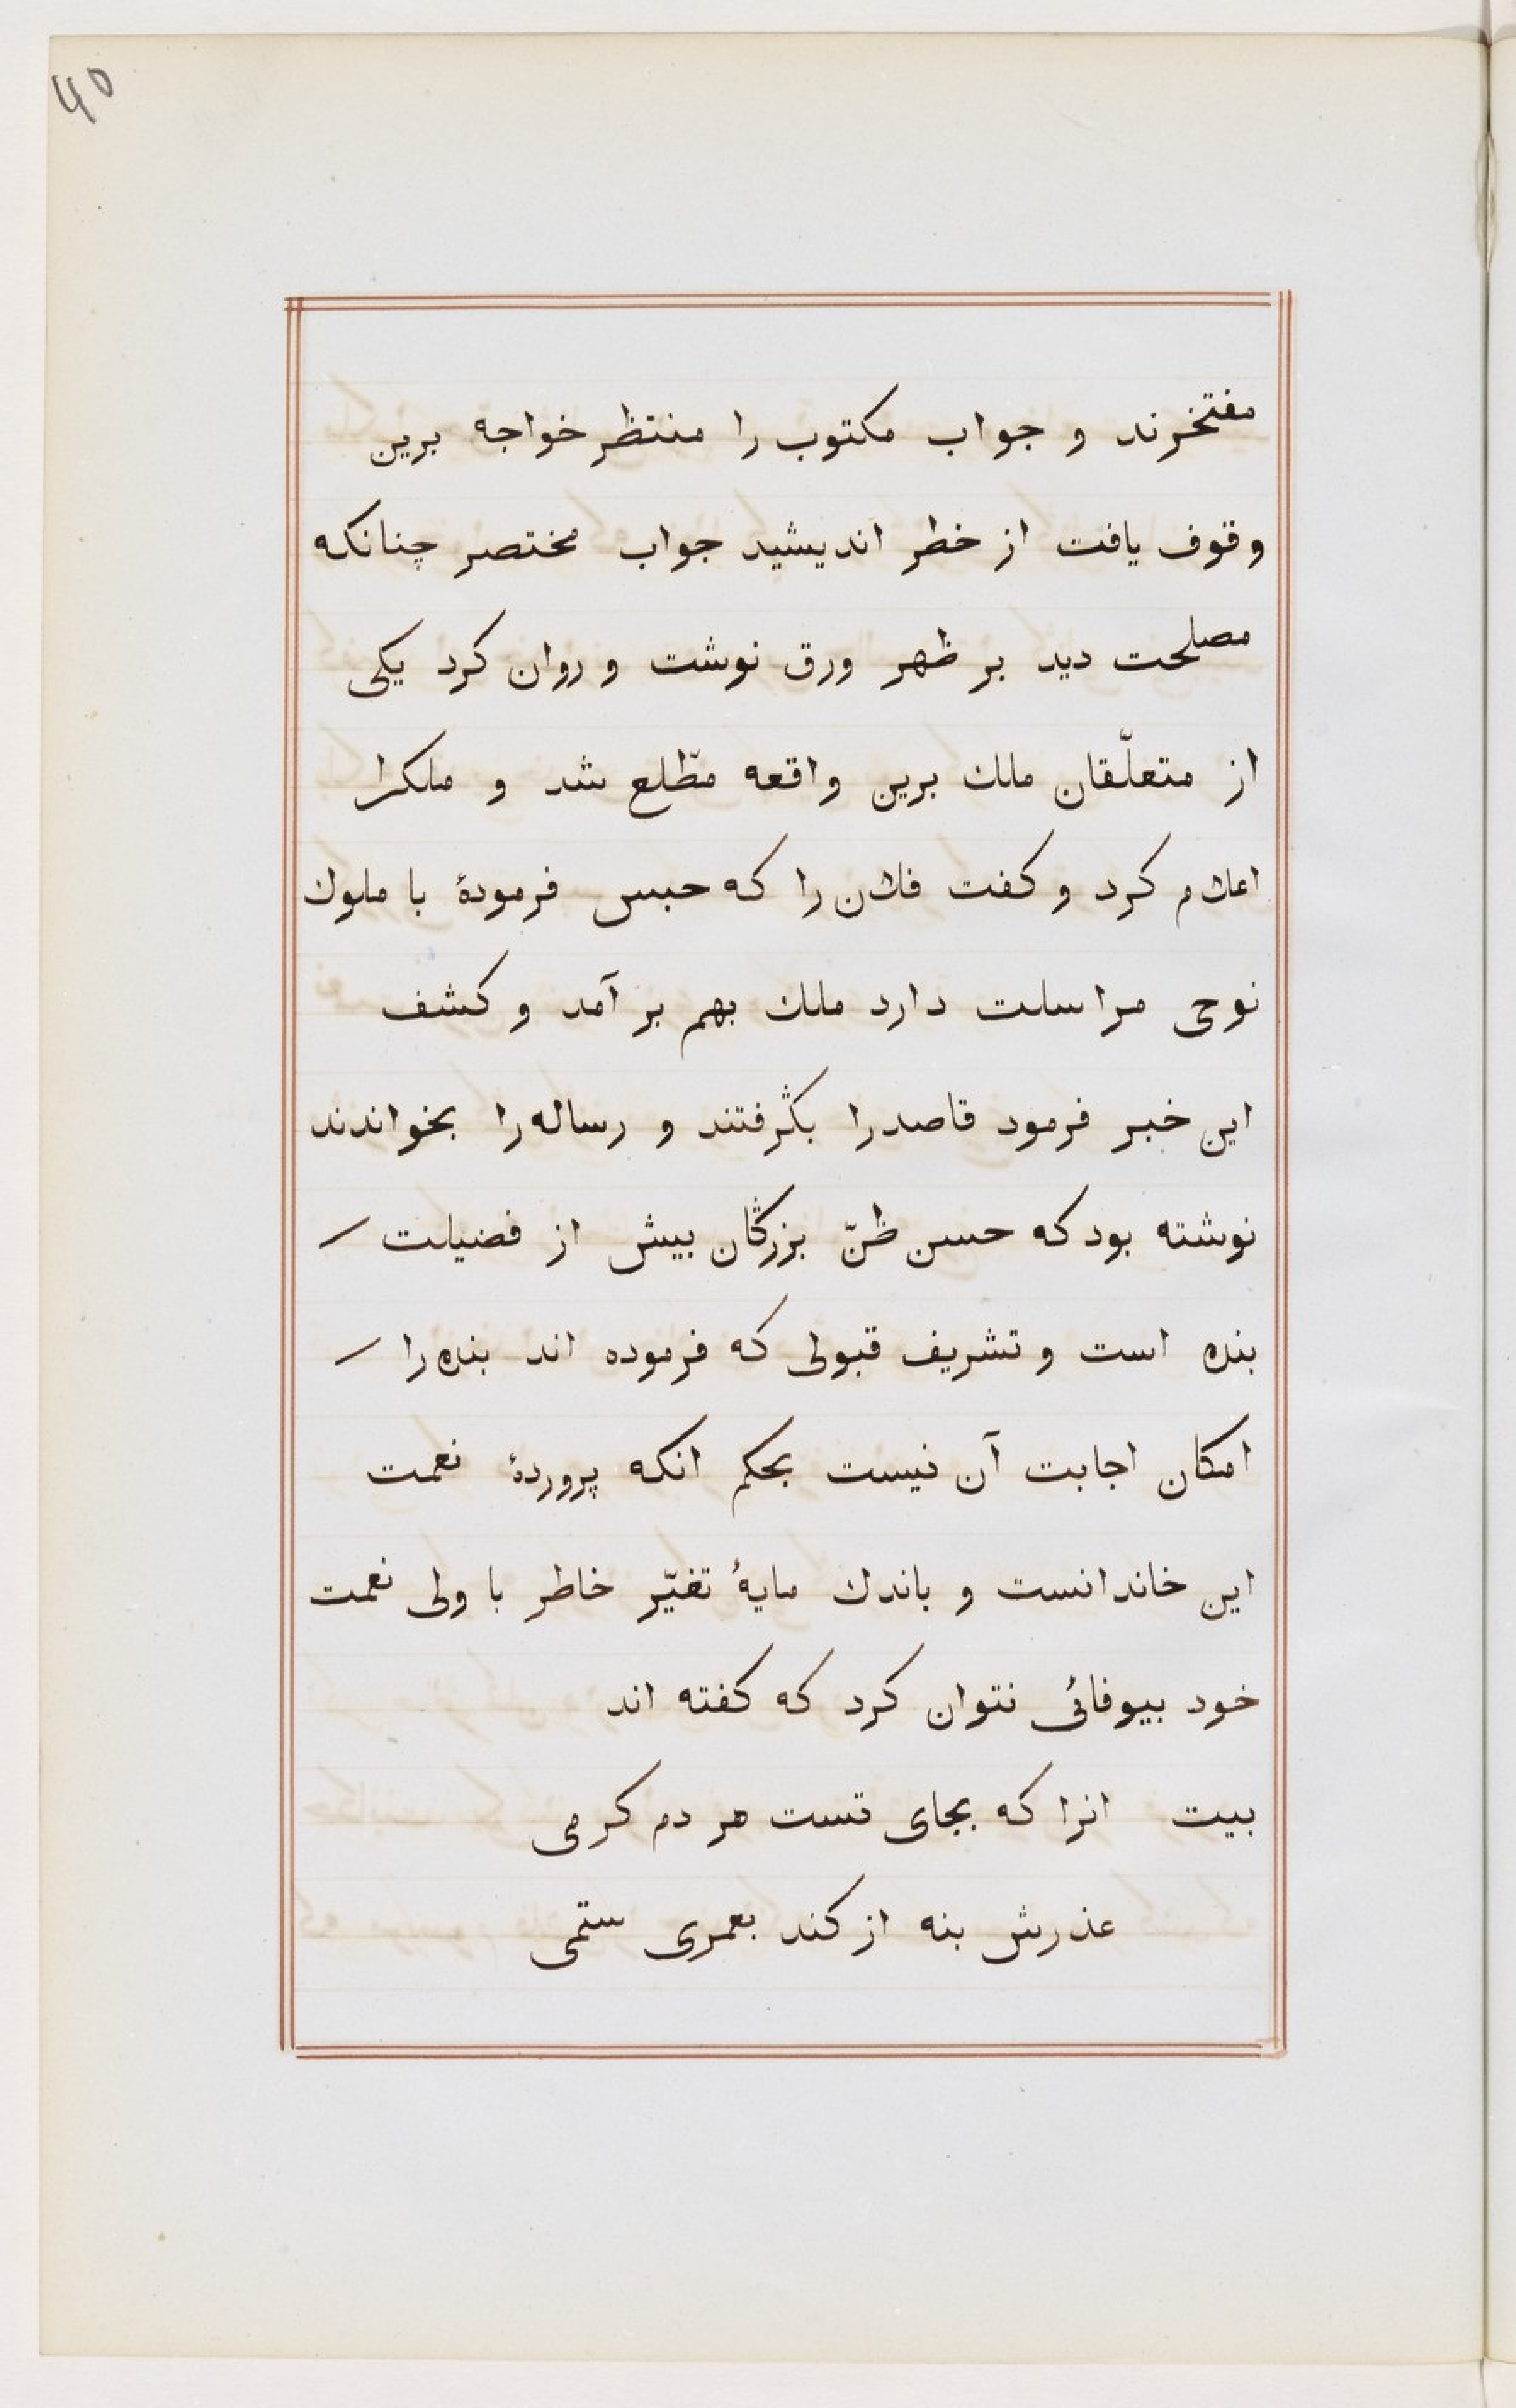 ۴۵
مفتخرند و جواب مکتوب را منتظر خواجه برین
وقوف یافت از خطر اندیشید جواب مختصر چنانکه
مصلحت دید بر ظهر ورق نوشت و روان کرد یکی
از متعلّقان ملك برین واقعه مطّلع شد و ملکرا
اعلام کرد و کفت فلان را که حبس فرمودهٔ با ملوك
نوحی مراسلت دارد ملك بهم بر آمد و کشف
این خبر فرمود قاصدرا بگرفتند و رساله را بخواندند
نوشته بود که حسن ظنّ بزرگان بیش از فضیلت
بنده است و تشریف قبولی که فرموده اند بنده را
امکان اجابت آن نیست بحکم انکه پروردهٔ نعمت
این خاندانست و باندك مایهٔ تغیّر خاطر با ولی نعمت
خود بیوفائی نتوان کرد که کفته اند
بیت انرا که بجای تست هر دم کرمی
عذرش بنه از کند بعمری ستمی